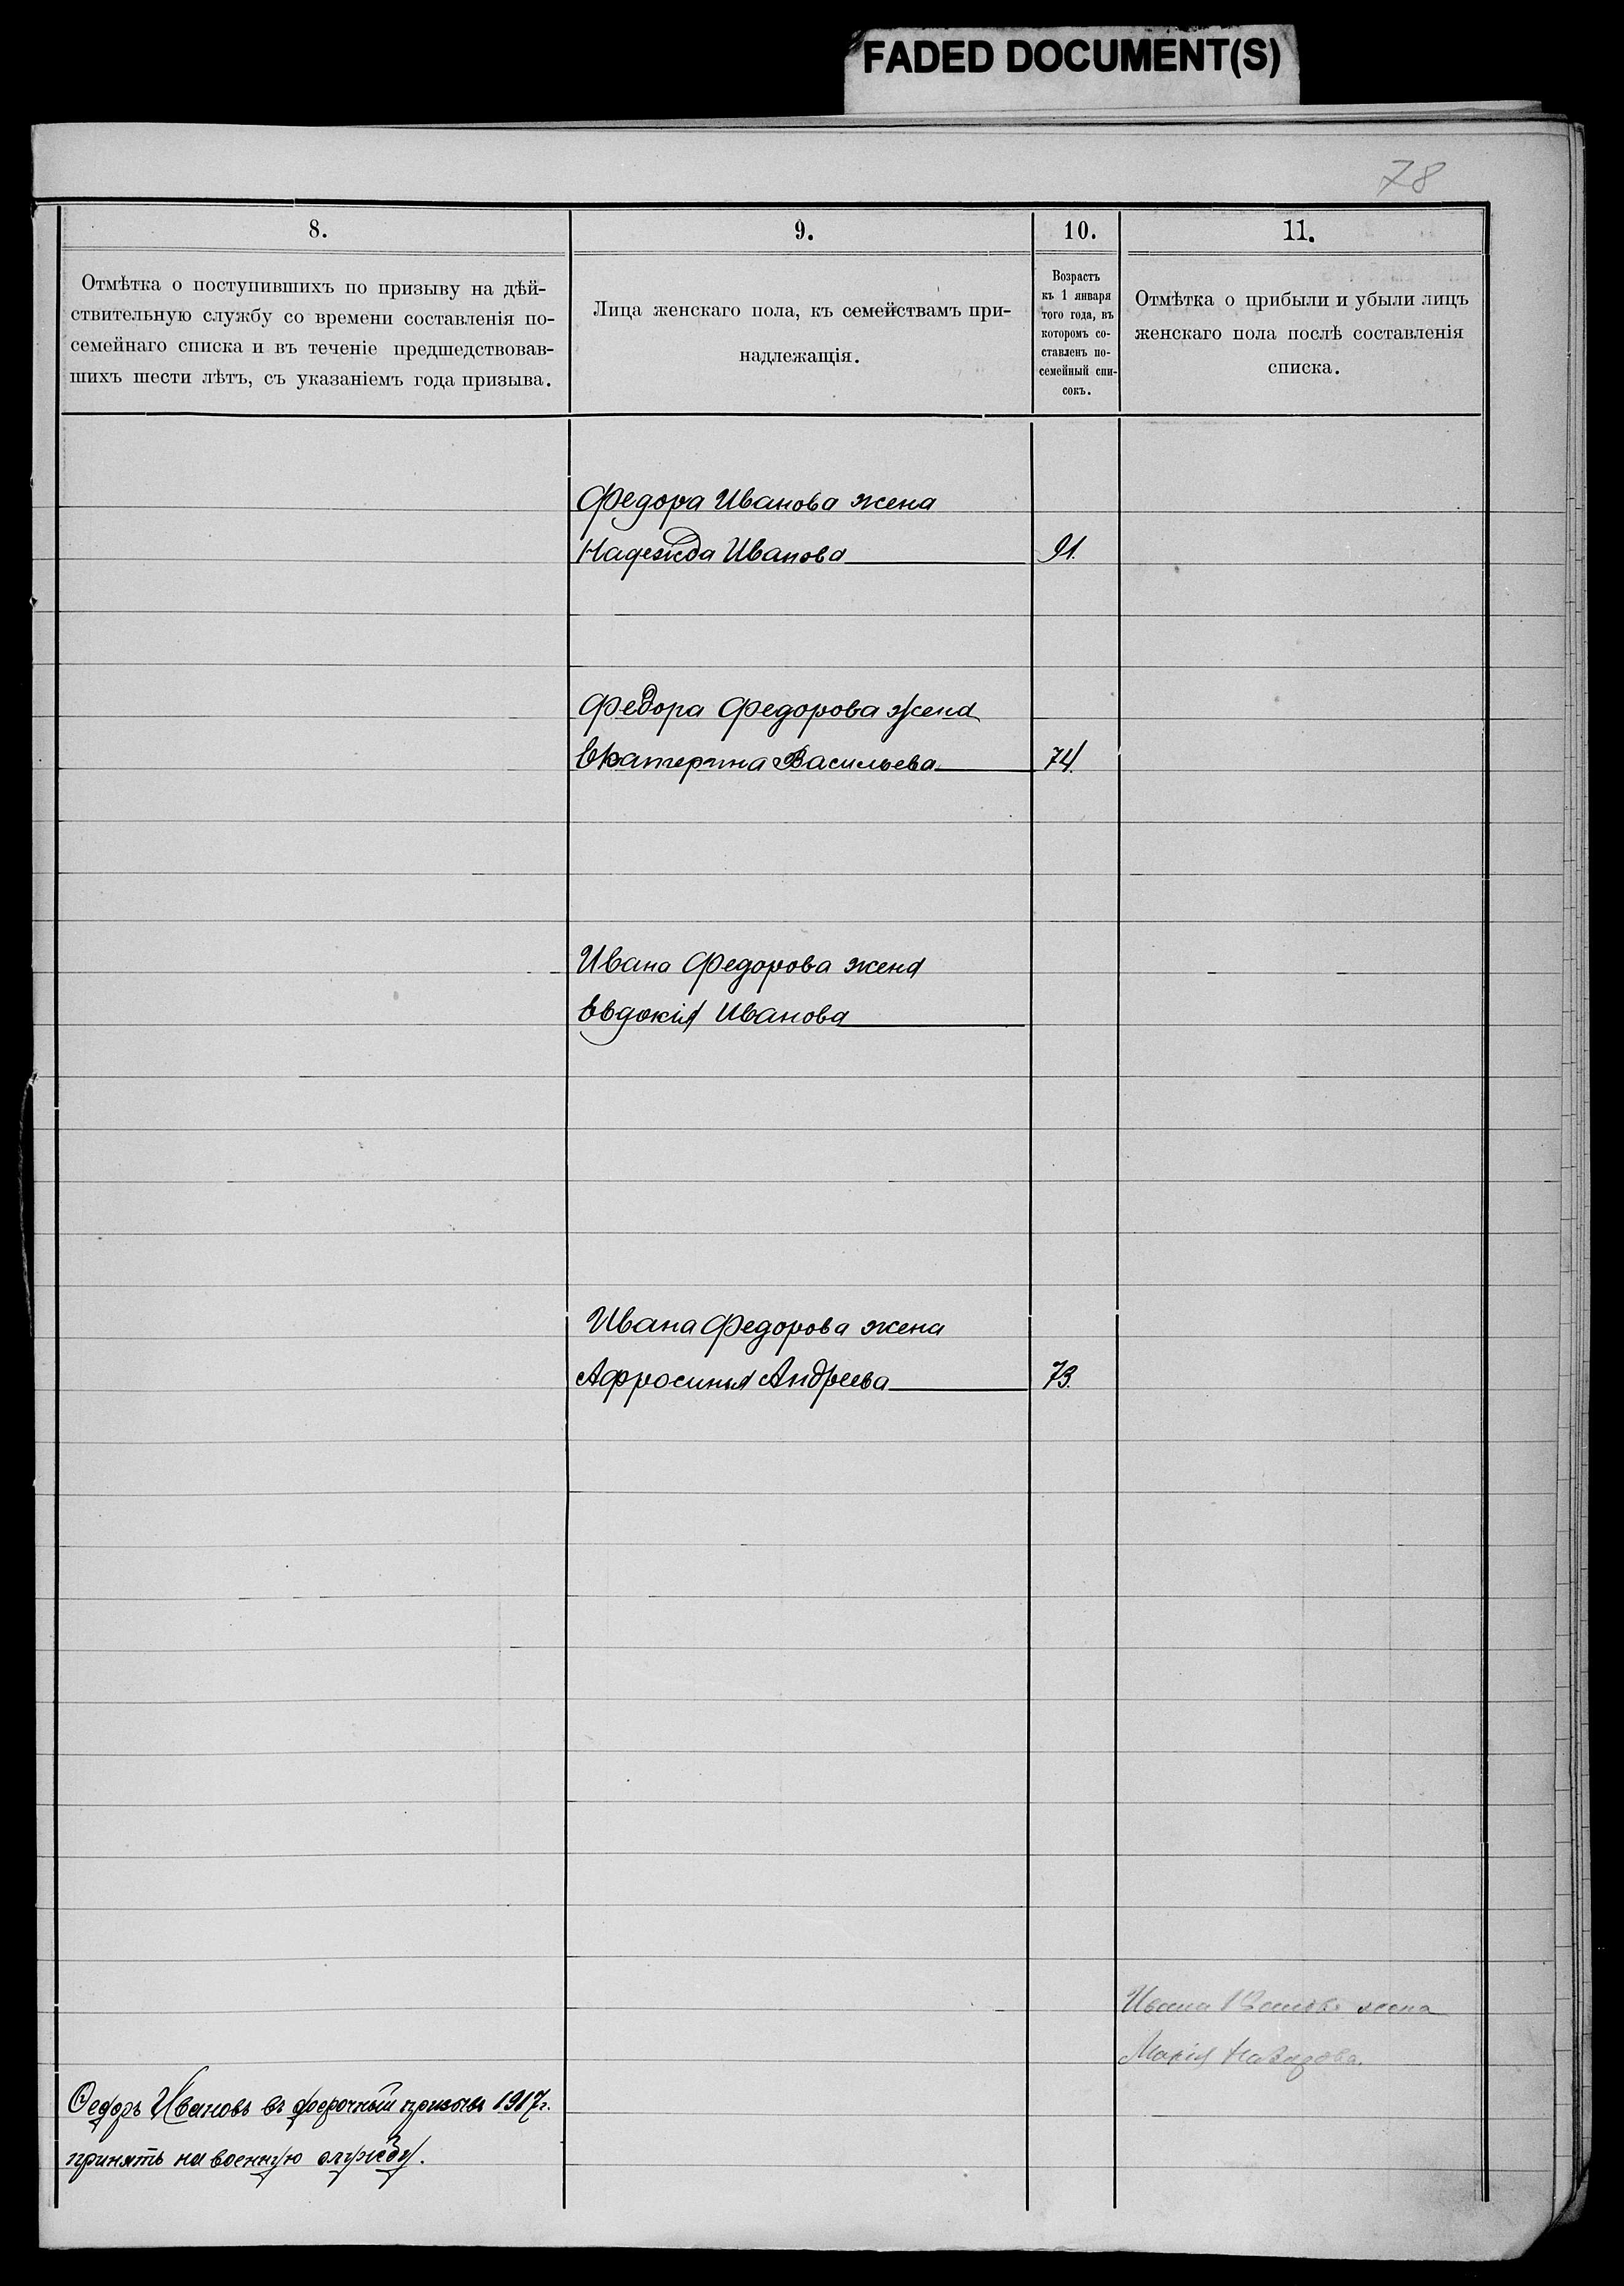 FADED DOCUMENT(S)
78
8.
9.
10.
11.
Отмѣтка о поступившихъ по призыву на дѣй-
ствительную службу со времени составленія по-
семейнаго списка и въ теченіе предшедствовав-
шихъ шести лѣтъ, съ указаніемъ года призыва.
Лица женскаго пола, къ семействамъ при-
надлежащія.
Возрастъ
къ 1 января
того года, въ
которомъ со-
ставленъ по-
семейный спи-
сокъ.
Отмѣтка о прибыли и убыли лицъ
женскаго пола послѣ составленія
списка.
Федора Иванова жена
Надежда Иванова
91.
Федора Федорова жена
Екатерина Васильева
74.
Ивана Федорова жена
Евдокія Иванова
Ивана Федорова жена
Афросинья Андреева
73.
Ивана Иванова жена
Марія
Ѳедоръ Ивановъ въ досрочный призывъ 1917 г.
принятъ на военную службу.